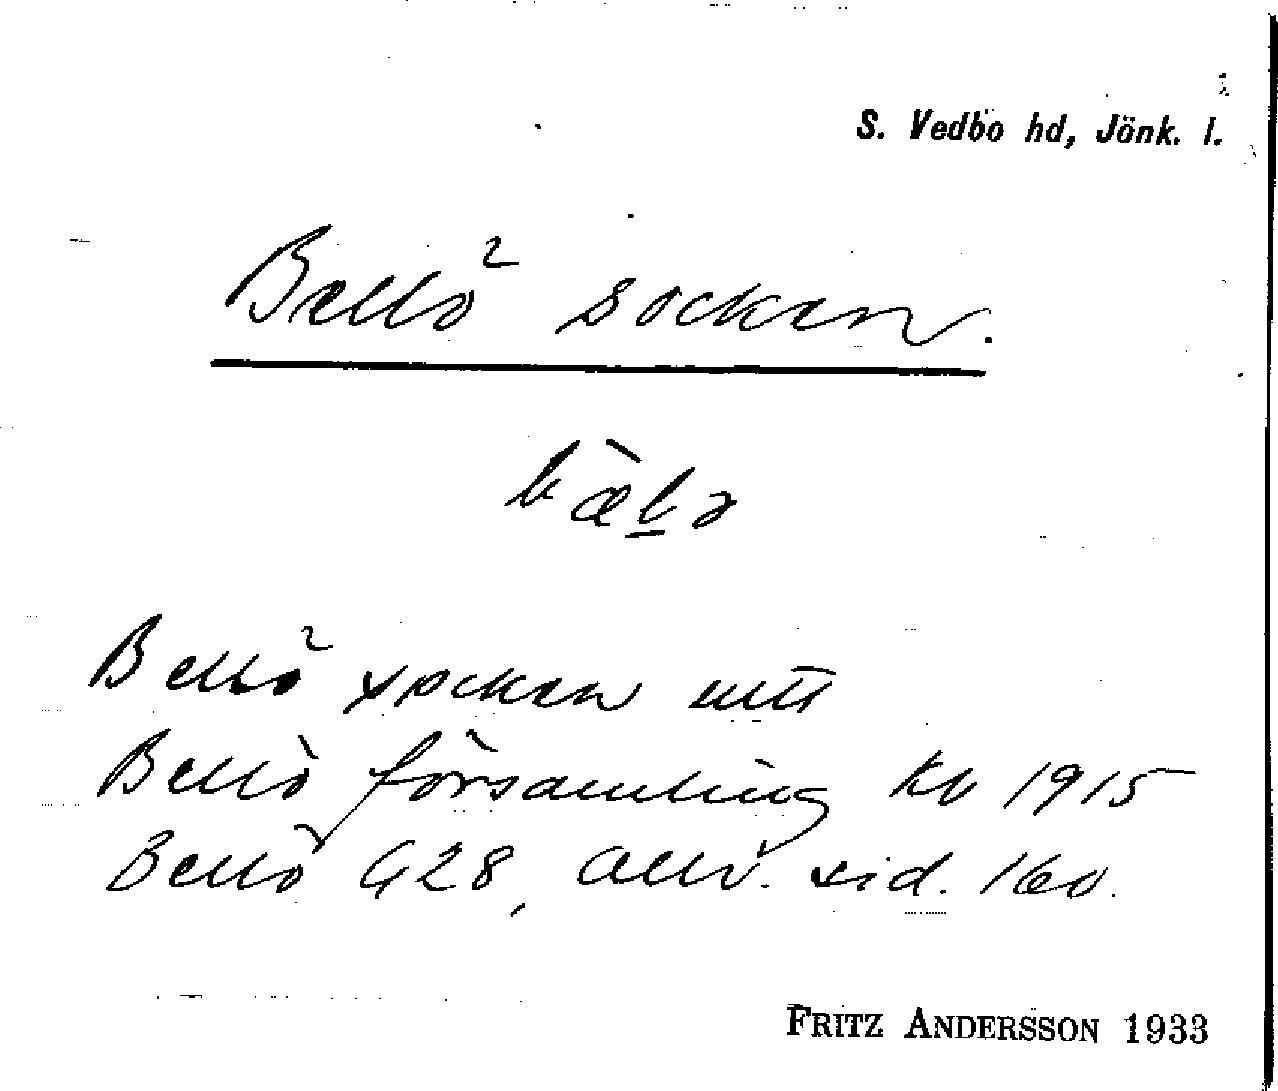 S. Vedbo hd, Jönk. l.
Bellö socken.
bæ̀l̲ə
Bellö socken utt
Bellö församling kb 1915
Bellö G28, Allv. sid. 160.
FRITZ ANDERSSON 1933